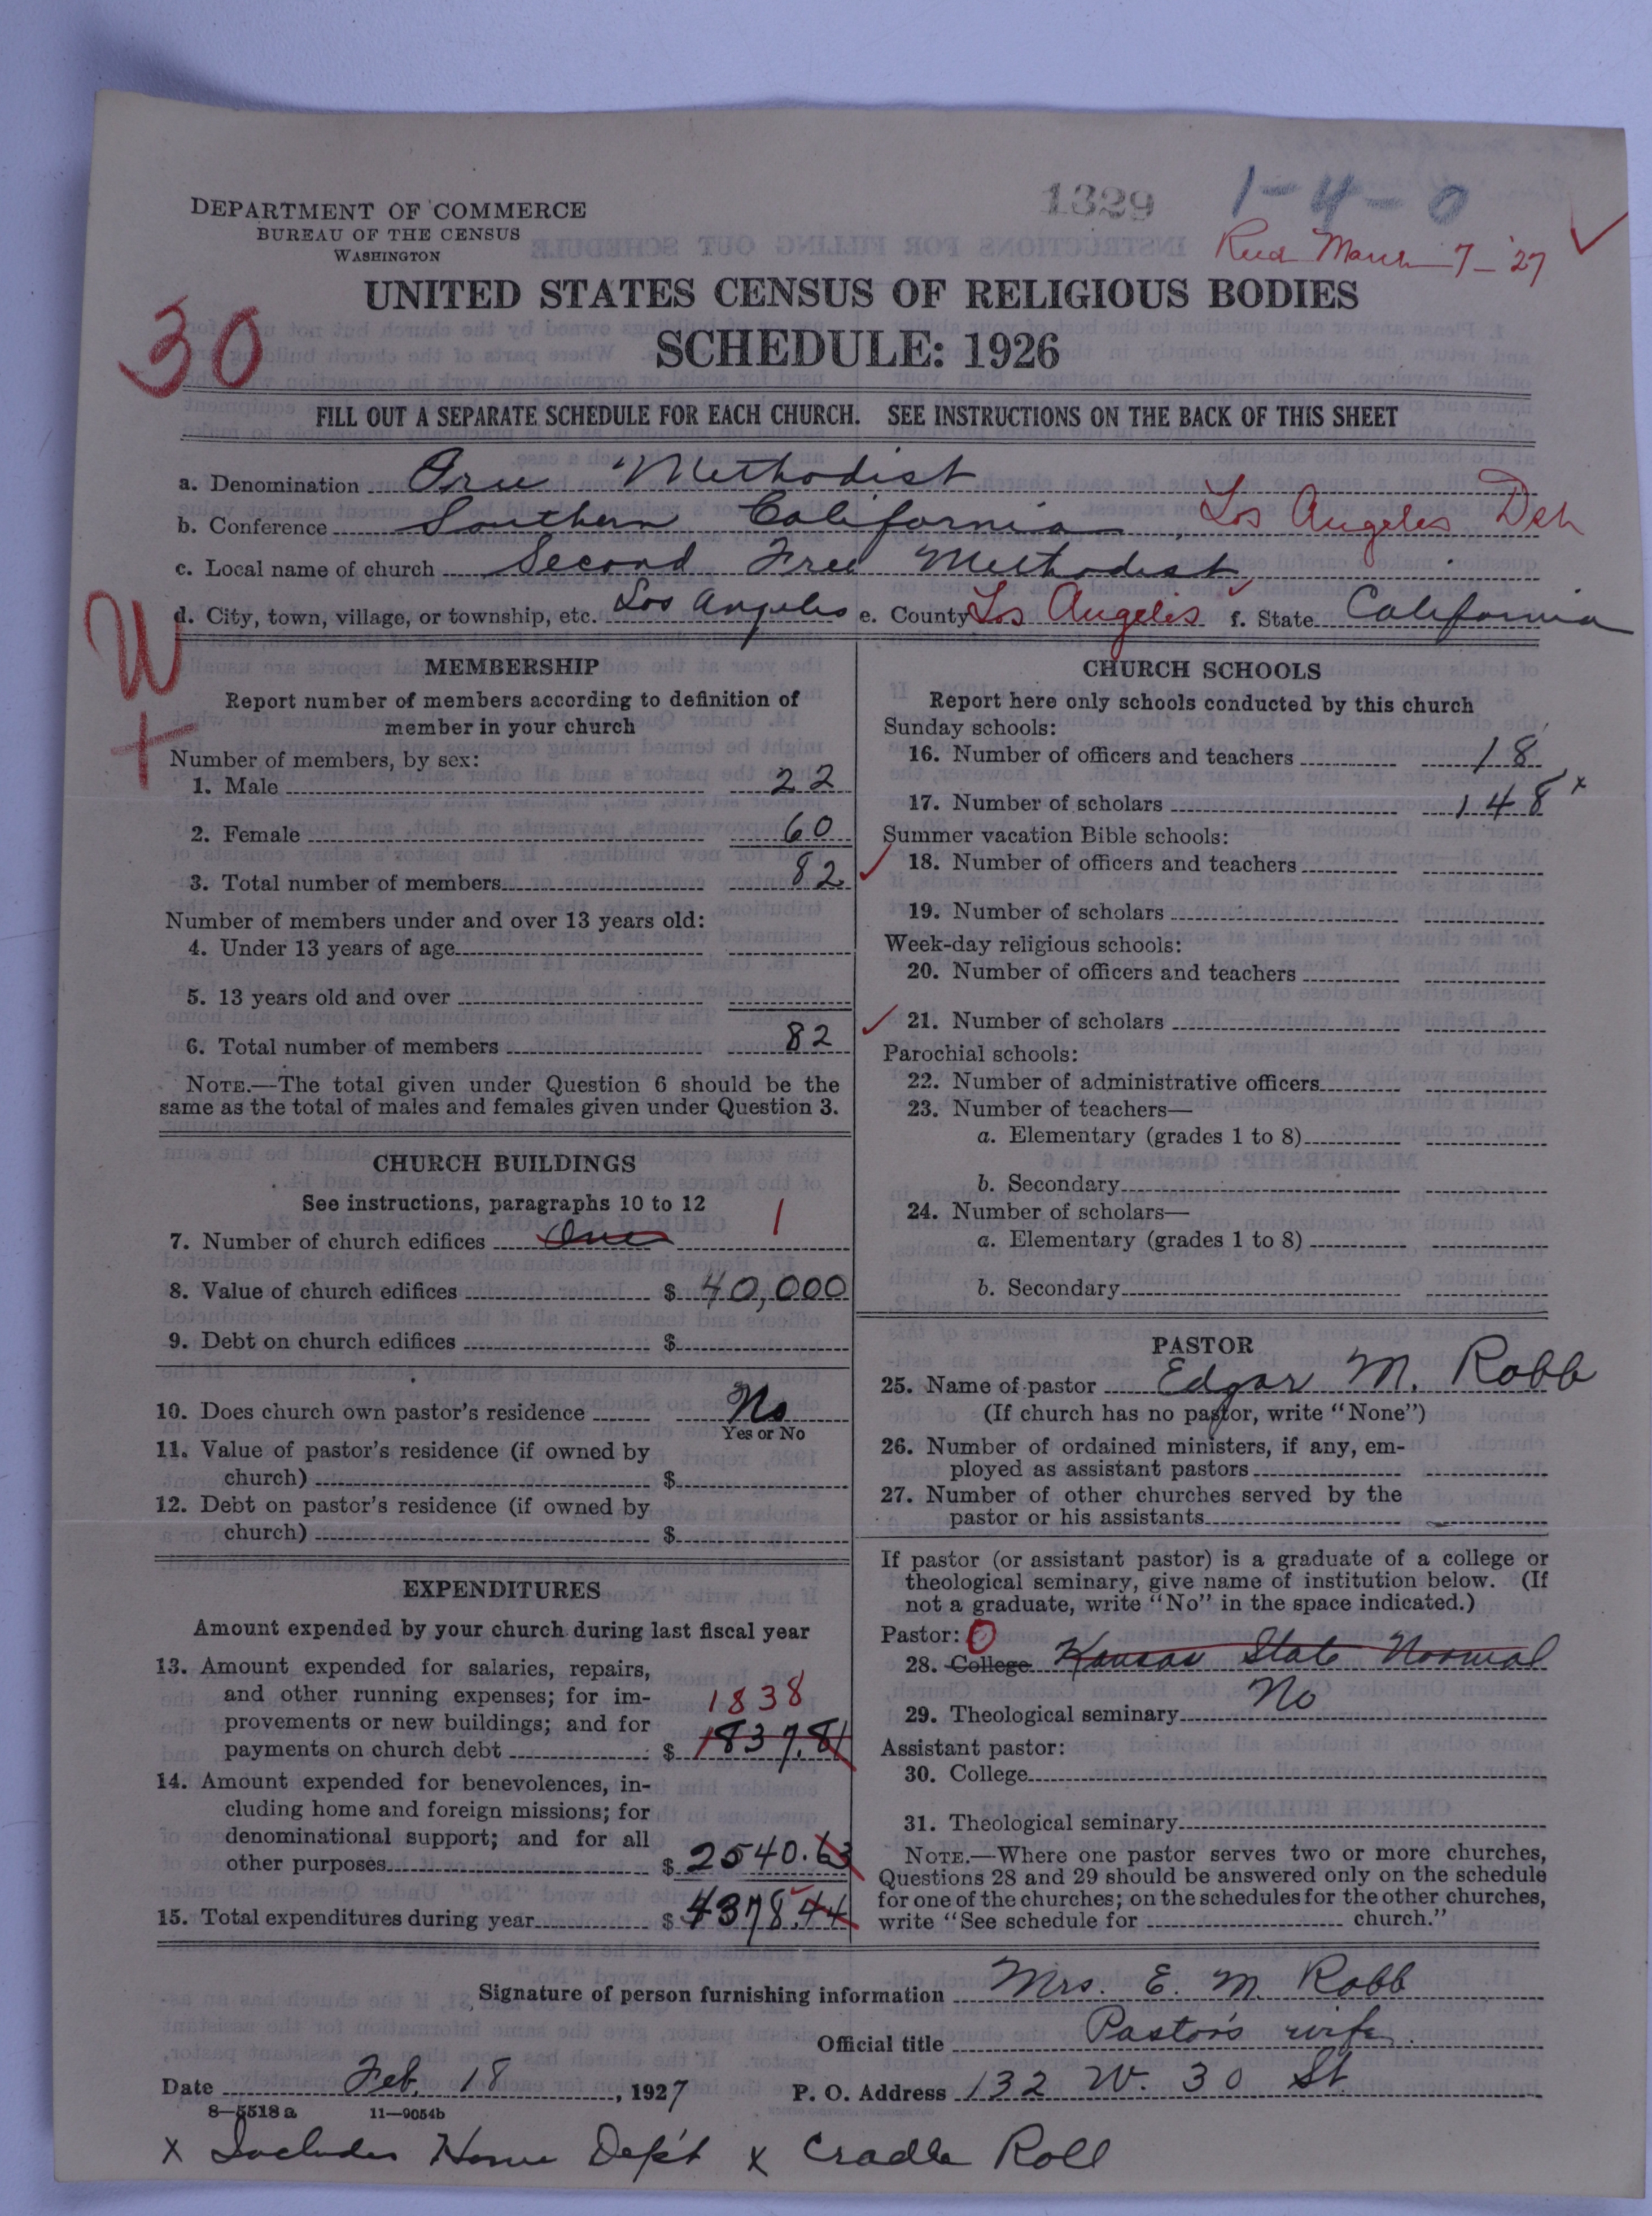 1329 1-4-0
DEPARTMENT OF COMMERCE
BUREAU OF THE CENSUS
WASHINGTON
Recd March 7-'27
UNITED STATES CENSUS OF RELIGIOUS BODIES
30
SCHEDULE: 1926
FILL OUT A SEPARATE SCHEDULE FOR EACH CHURCH. SEE INSTRUCTIONS ON THE BACK OF THIS SHEET
a. Denomination Free Methodist
b. Conference Southern California, Los Angeles Dch
c. Local name of church Second Free Methodist
d. City, town, village, or township, etc. Los Angeles e. County Los Angeles f. State California
W
+
MEMBERSHIP
Report number of members according to definition of
member in your church
Number of members, by sex:
1. Male 22
2. Female 60
3. Total number of members 82
Number of members under and over 13 years old:
4. Under 13 years of age
5. 13 years old and over
6. Total number of members 82
NOTE.—The total given under Question 6 should be the
same as the total of males and females given under Question 3.
CHURCH BUILDINGS
See instructions, paragraphs 10 to 12
7. Number of church edifices One 1
8. Value of church edifices $ 40,000
9. Debt on church edifices $
10. Does church own pastor's residence No
Yes or No
11. Value of pastor's residence (if owned by
church) $
12. Debt on pastor's residence (if owned by
church) $
EXPENDITURES
Amount expended by your church during last fiscal year
13. Amount expended for salaries, repairs,
and other running expenses; for im-
1838
provements or new buildings; and for
payments on church debt $ 1837.81
14. Amount expended for benevolences, in-
cluding home and foreign missions; for
denominational support; and for all
other purposes $ 2540.63
15. Total expenditures during year $ 4378.44
CHURCH SCHOOLS
Report here only schools conducted by this church
Sunday schools:
16. Number of officers and teachers 18
17. Number of scholars 148 x
Summer vacation Bible schools:
18. Number of officers and teachers
19. Number of scholars
Week-day religious schools:
20. Number of officers and teachers
21. Number of scholars
Parochial schools:
22. Number of administrative officers
23. Number of teachers—
a. Elementary (grades 1 to 8)
b. Secondary
24. Number of scholars—
a. Elementary (grades 1 to 8)
b. Secondary
PASTOR
25. Name of pastor Edgar M. Robb
(If church has no pastor, write "None")
26. Number of ordained ministers, if any, em-
ployed as assistant pastors
27. Number of other churches served by the
pastor or his assistants
If pastor (or assistant pastor) is a graduate of a college or
theological seminary, give name of institution below. (If
not a graduate, write "No" in the space indicated.)
Pastor: 0
28. College Kansas State Normal
29. Theological seminary No
Assistant pastor:
30. College
31. Theological seminary
NOTE.—Where one pastor serves two or more churches,
Questions 28 and 29 should be answered only on the schedule
for one of the churches; on the schedules for the other churches,
write "See schedule for church."
Signature of person furnishing information Mrs. E. M. Robb
Official title Pastor's wife
Date Feb. 18, 1927 P. O. Address 132 W. 30 St.
8—5518 a 11—9054b
x Includes Home Dep't x Cradle Roll